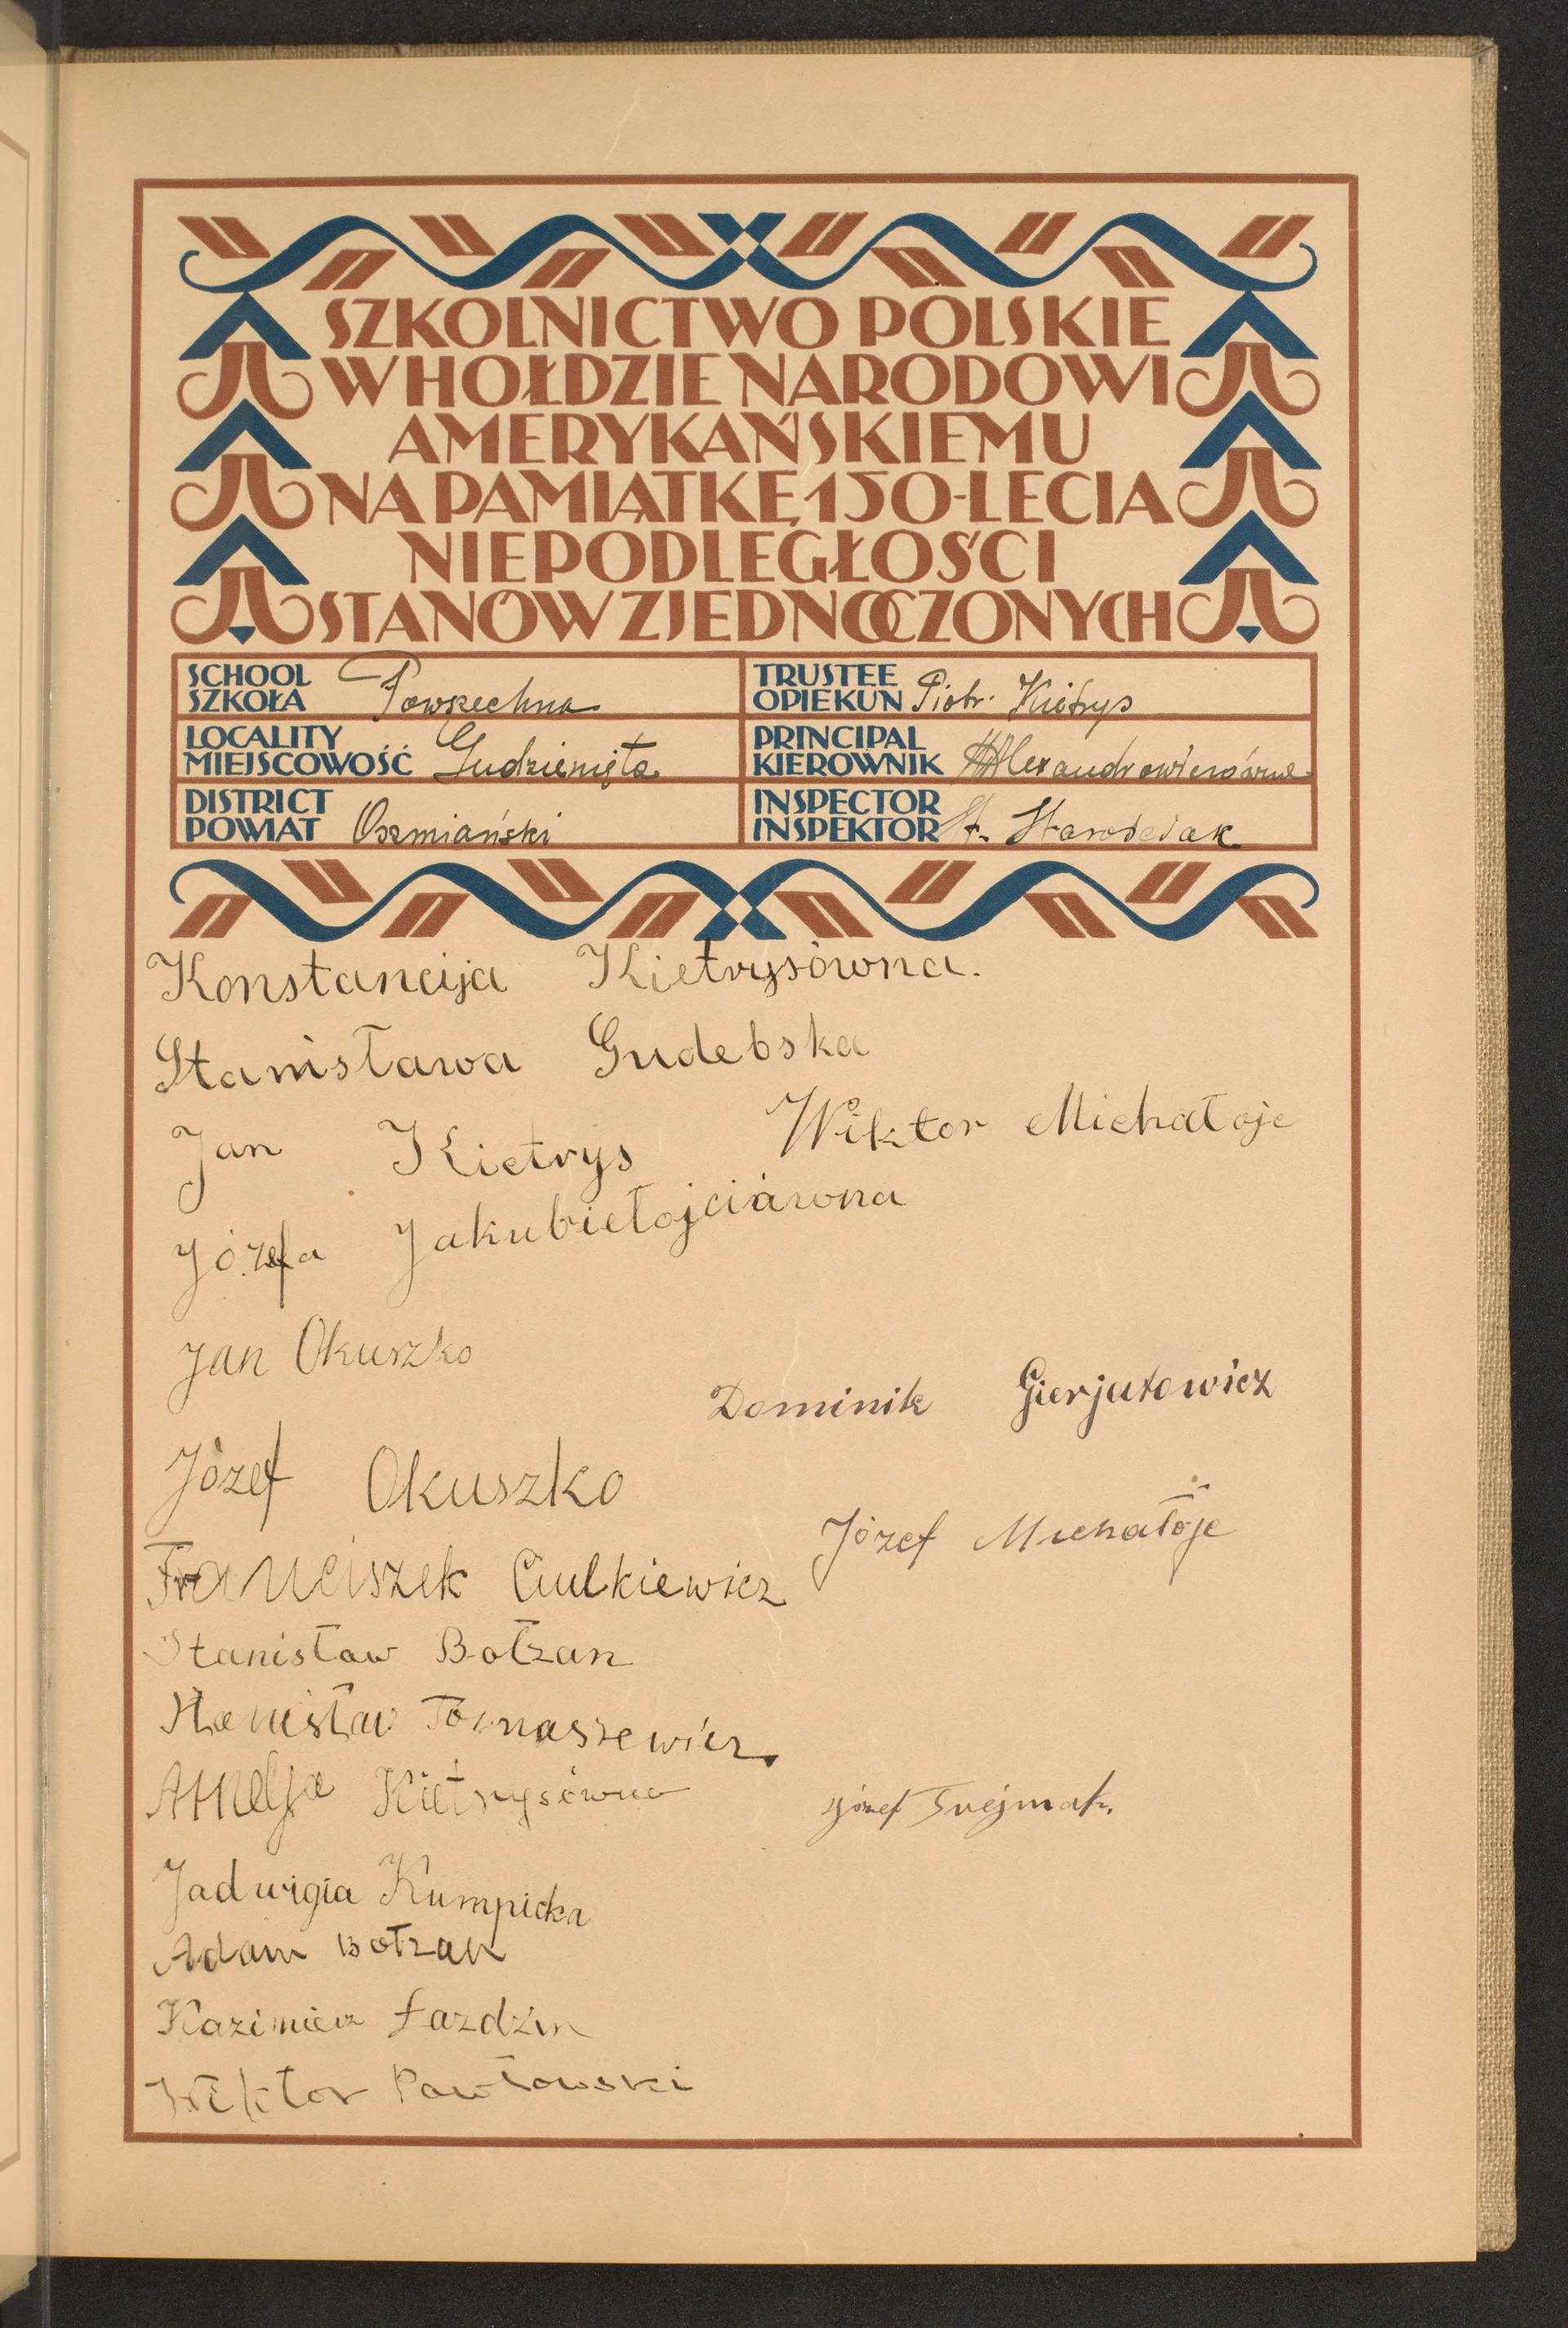 SZKOLNICTWO POLSKIE
W HOŁDZIE NARODOWI
AMERYKAŃSKIEMU
NA PAMIĄTKĘ 150-LECIA
NIEPODLEGŁOŚCI
STANÓW ZJEDNOCZONYCH
SCHOOL
SZKOŁA Powszechna
TRUSTEE
OPIEKUN Piotr Kietrys
LOCALITY
MIEJSCOWOŚĆ Gudzienięta
PRINCIPAL
KIEROWNIK
DISTRICT
POWIAT Oszmiański
INSPECTOR
INSPEKTOR St. Starościak
Konstancija Kietrysówna.
Stanisława Gudebska
Jan Kietrys
Wiktor Michałoje
Józefa Jakubiełojciówna
Jan Okuszko
Dominik Gierjatowicz
Józef Okuszko
Józef Michałoje
Franciszek Ciulkiewicz
Stanisław Bołzan
Stanisław Tomaszewicz
Amelja Kietrysówna
Józef Trejmak.
Jadwigia Kumpicka
Adam Bołzan
Kazimierz Łazdzin
Wiktor Pawłowski